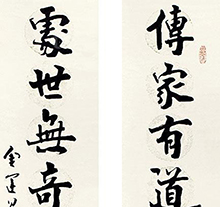 傳家有道
處世無奇
金運